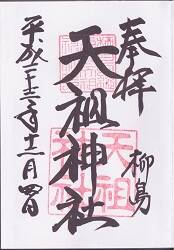 奉拝
柳島
天祖神社
平成二十三年十二月四日
天祖
神社